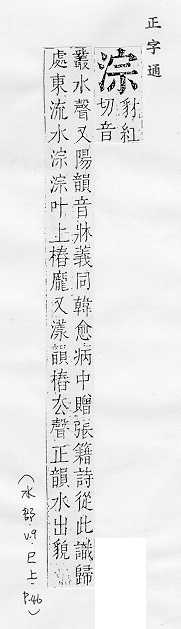 正字通
淙
豺紅
切音
叢水聲又陽韻音牀義同韓愈病中贈張籍詩從此識歸
處東流水淙淙叶上樁龐又漾韻樁厺聲正韻水出貌
(水部 V.9 巳上 P.46)